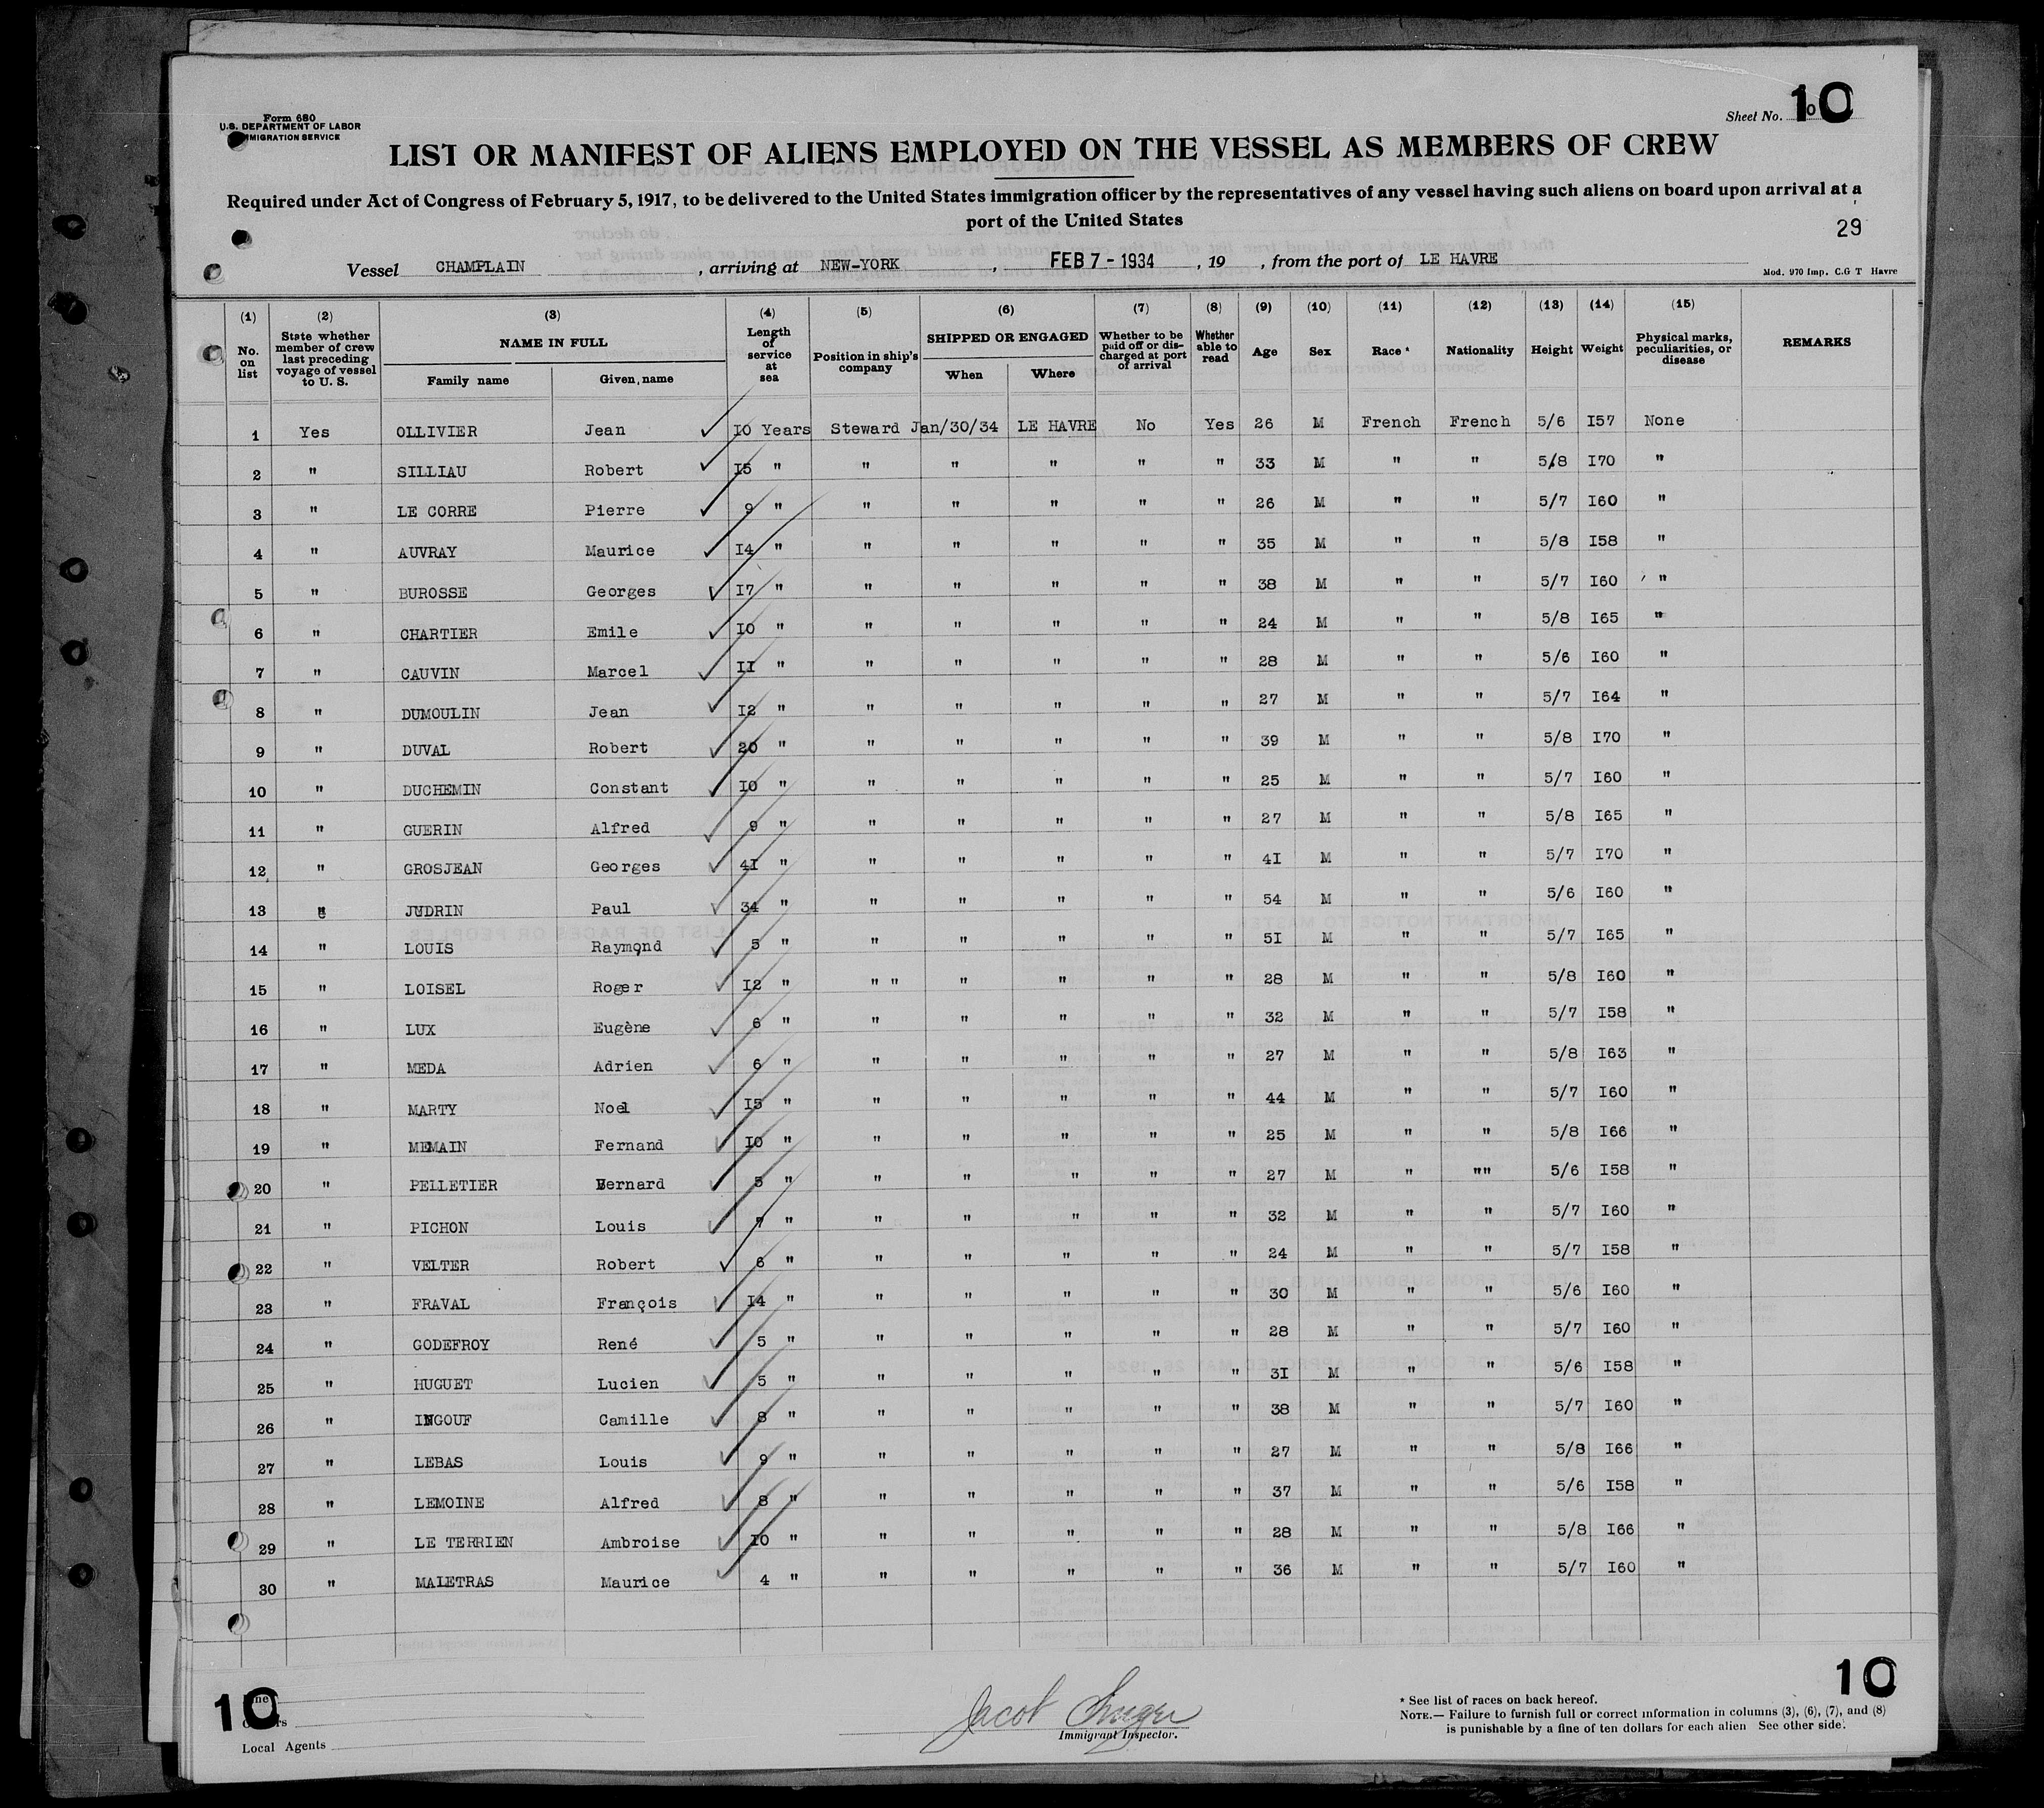 Form 680
U.S. DEPARTMENT OF LABOR
IMMIGRATION SERVICE
Sheet No. 10
LIST OR MANIFEST OF ALIENS EMPLOYED ON THE VESSEL AS MEMBERS OF CREW
Required under Act of Congress of February 5, 1917, to be delivered to the United States immigration officer by the representatives of any vessel having such aliens on board upon arrival at a
port of the United States
29
Vessel CHAMPLAIN , arriving at NEW-YORK , FEB 7 - 1934 , 19 , from the port of LE HAVRE
Mod. 970 Imp. C.G T Havre
(1) No. on list (2) State whether member of crew last preceding voyage of vessel to U. S. (3) NAME IN FULL Family name Given name (4) Length of service at sea (5) Position in ship's company (6) SHIPPED OR ENGAGED When Where (7) Whether to be paid off or discharged at port of arrival (8) Whether able to read (9) Age (10) Sex (11) Race * (12) Nationality (13) Height (14) Weight (15) Physical marks, peculiarities, or disease REMARKS
1 Yes OLLIVIER Jean 10 Years Steward Jan/30/34 LE HAVRE No Yes 26 M French French 5/6 I57 None
2 " SILLIAU Robert I5 " " " " " " 33 M " " 5/8 I70 "
3 " LE CORRE Pierre 9 " " " " " " 26 M " " 5/7 I60 "
4 " AUVRAY Maurice I4 " " " " " " 35 M " " 5/8 I58 "
5 " BUROSSE Georges I7 " " " " " " 38 M " " 5/7 I60 "
6 " CHARTIER Emile I0 " " " " " " 24 M " " 5/8 I65 "
7 " CAUVIN Marcel II " " " " " " 28 M " " 5/6 I60 "
8 " DUMOULIN Jean I2 " " " " " " 27 M " " 5/7 I64 "
9 " DUVAL Robert 20 " " " " " " 39 M " " 5/8 I70 "
10 " DUCHEMIN Constant I0 " " " " " " 25 M " " 5/7 I60 "
11 " GUERIN Alfred 9 " " " " " " 27 M " " 5/8 I65 "
12 " GROSJEAN Georges 4I " " " " " " 4I M " " 5/7 I70 "
13 " JUDRIN Paul 34 " " " " " " 54 M " " 5/6 I60 "
14 " LOUIS Raymond 5 " " " " " " 5I M " " 5/7 I65 "
15 " LOISEL Roger I2 " " " " " " " 28 M " " 5/8 I60 "
16 " LUX Eugène 6 " " " " " " 32 M " " 5/7 I58 "
17 " MEDA Adrien 6 " " " " " " 27 M " " 5/8 I63 "
18 " MARTY Noel I5 " " " " " " 44 M " " 5/7 I60 "
19 " MEMAIN Fernand I0 " " " " " " 25 M " " 5/8 I66 "
20 " PELLETIER Bernard 5 " " " " " " 27 M " "" 5/6 I58 "
21 " PICHON Louis 7 " " " " " " 32 M " " 5/7 I60 "
22 " VELTER Robert 6 " " " " " " 24 M " " 5/7 I58 "
23 " FRAVAL François I4 " " " " " " 30 M " " 5/6 I60 "
24 " GODEFROY René 5 " " " " " " 28 M " " 5/7 I60 "
25 " HUGUET Lucien 5 " " " " " " 3I M " " 5/6 I58 "
26 " INGOUF Camille 8 " " " " " " 38 M " " 5/7 I60 "
27 " LEBAS Louis 9 " " " " " " 27 M " " 5/8 I66 "
28 " LEMOINE Alfred 8 " " " " " " 37 M " " 5/6 I58 "
29 " LE TERRIEN Ambroise I0 " " " " " " 28 M " " 5/8 I66 "
30 " MALETRAS Maurice 4 " " " " " " 36 M " " 5/7 I60 "
10
10
Local Agents
Jacob
Immigrant Inspector.
* See list of races on back hereof.
NOTE.— Failure to furnish full or correct information in columns (3), (6), (7), and (8)
is punishable by a fine of ten dollars for each alien See other side.